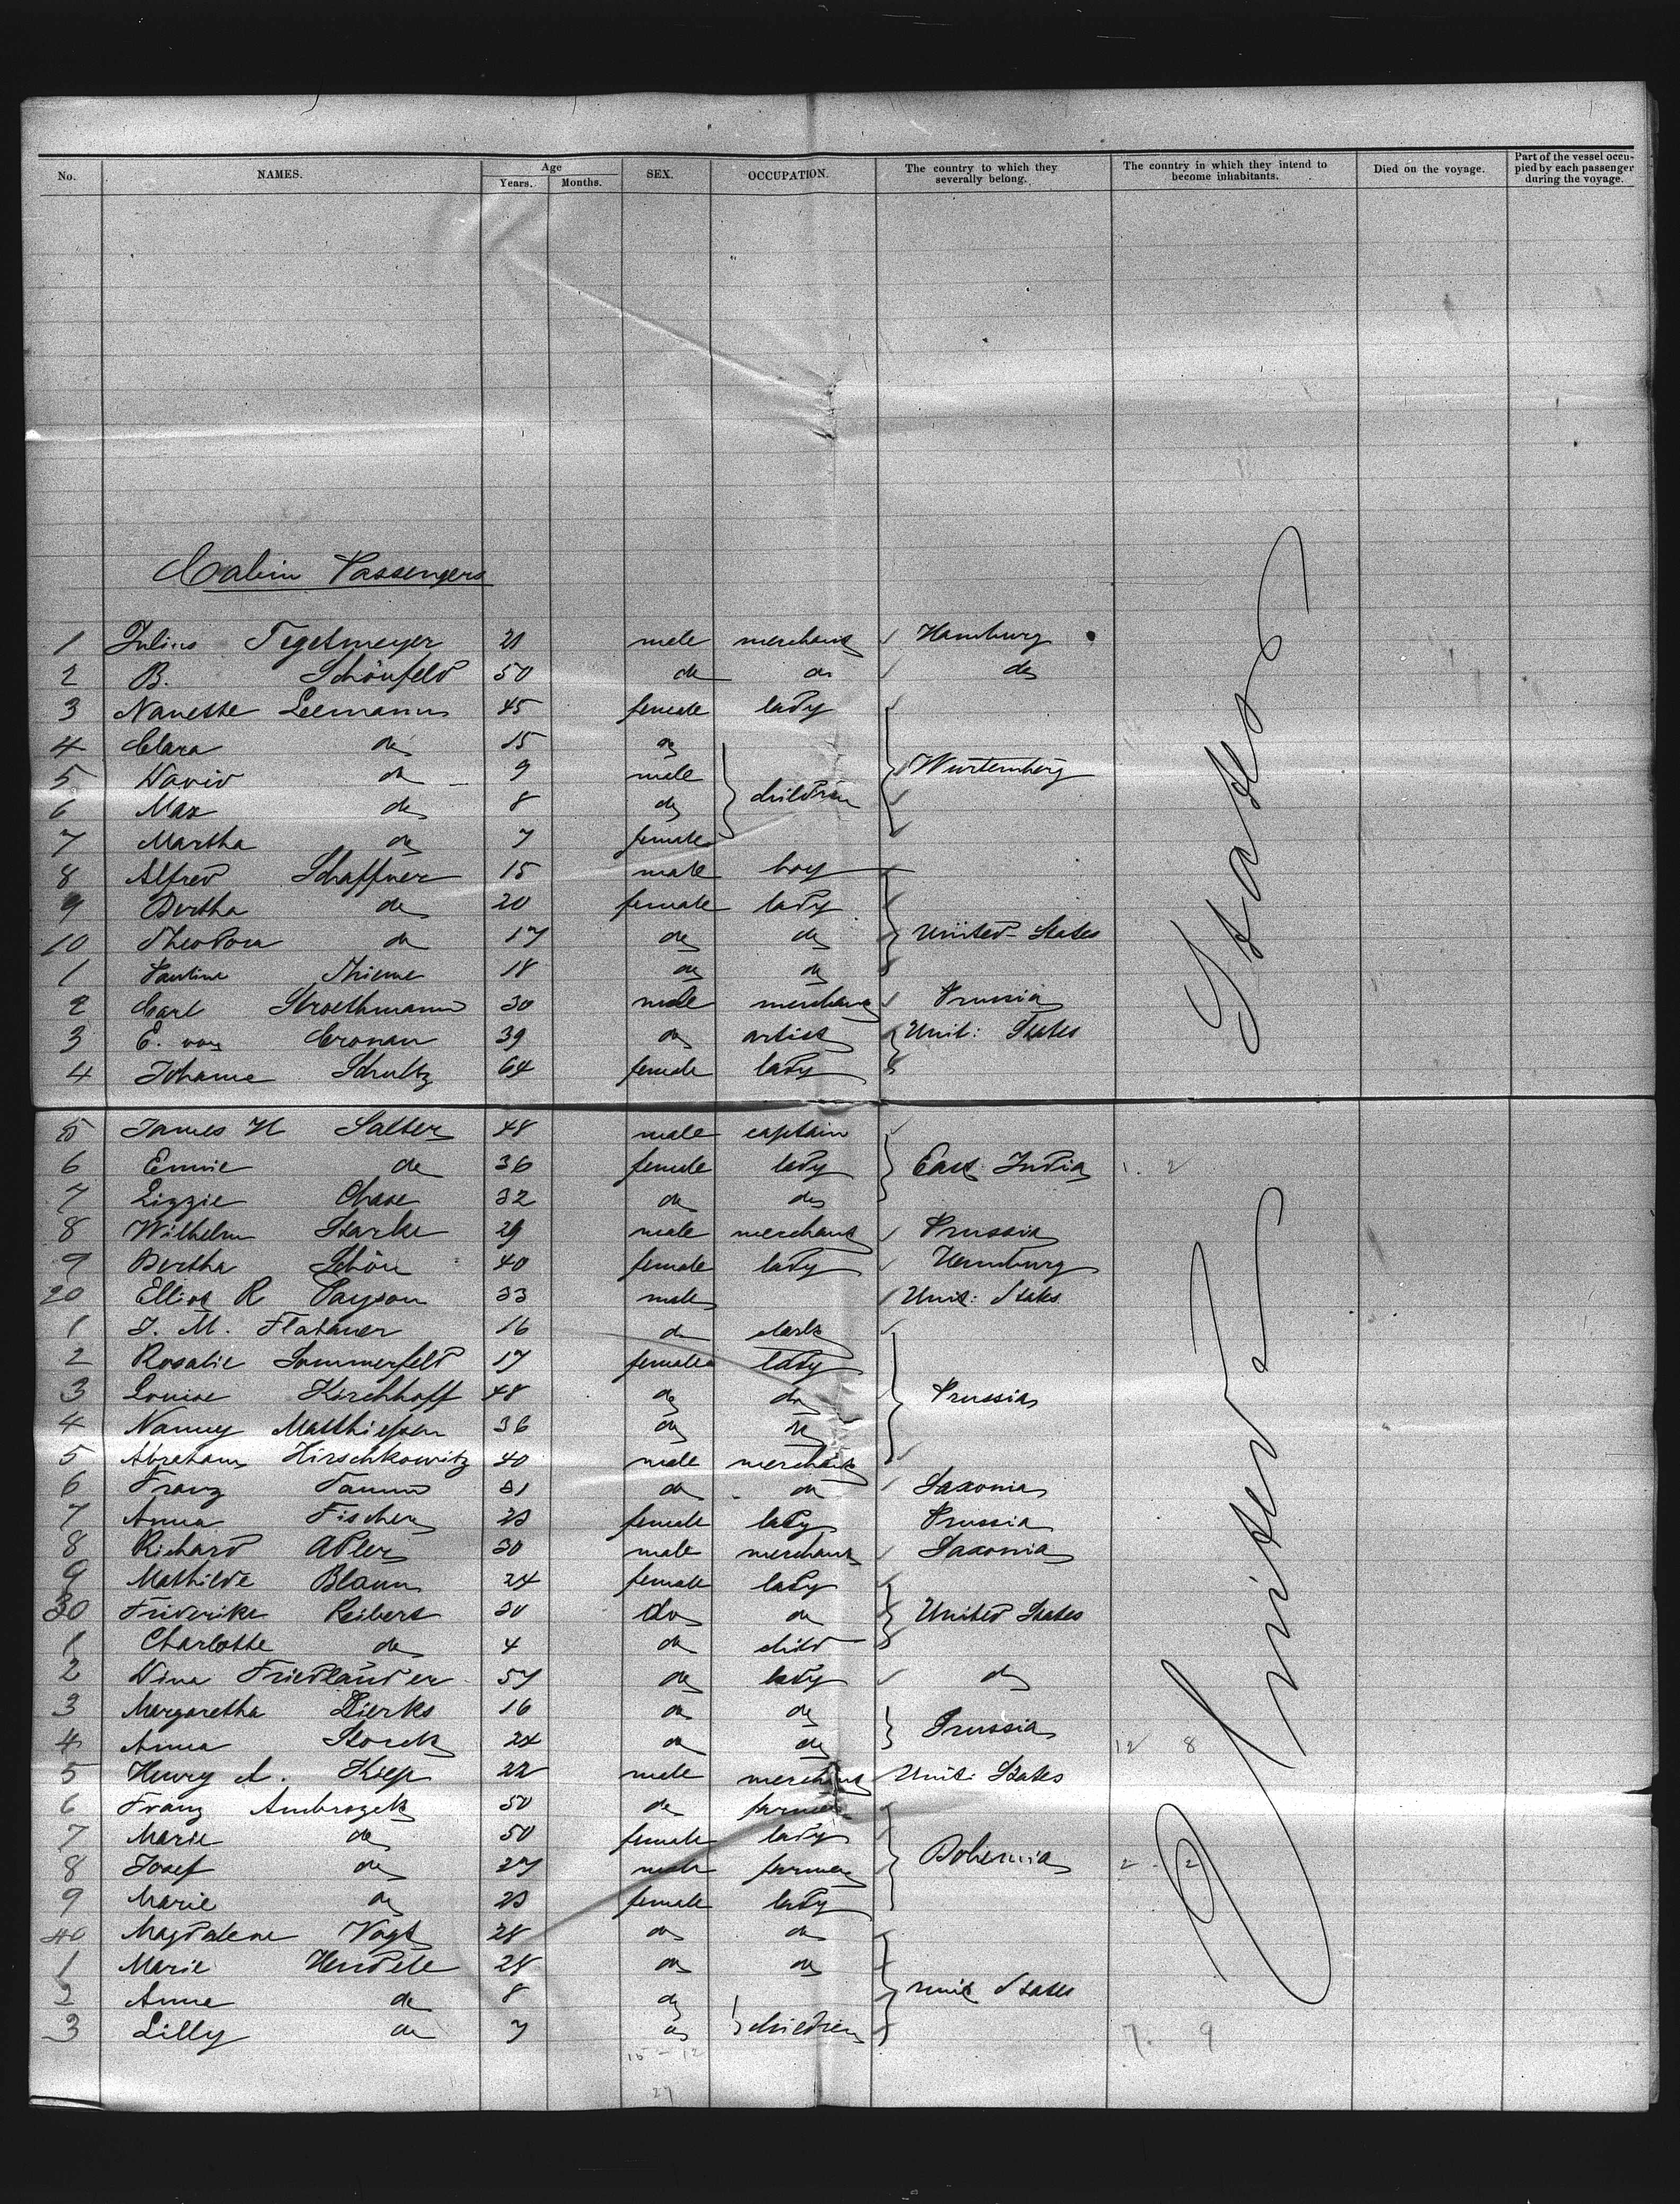 No. NAMES. Age Years. Months. SEX. OCCUPATION. The country to which they severally belong. The country in which they intend to become inhabitants. Died on the voyage. Part of the vessel occupied by each passenger during the voyage.
Cabin Passengers
1 Julius Tegelmeyer 21 male merchant Hamburg
2 B. Schönfeld 50 do do do
3 Nanette Leemann 45 female lady
4 Clara do 15 do
5 David do 9 male Wurtemberg
6 Max do 8 do children
7 Martha do 7 female
8 Alfred Schaffner 15 male boy
9 Bertha do 20 female lady
10 Theodora do 17 do do United States
1 Pauline Thieme 18 do do
2 Carl Stroethmann 30 male merchant Prussia
3 E. von Cronan 39 do artist Unit: States
4 Johanne Schultz 64 female lady
5 James H Salter 48 male captain
6 Emmie do 36 female lady East India 1. 2
7 Lizzie Chase 32 do do
8 Wilhelm Starke 29 male merchant Prussia
9 Bertha Schön 40 female lady Hamburg
20 Elliot R Payson 33 male Unit: States
1 J. M. Flatauer 16 do clerk
2 Rosalie Sommerfeld 17 female lady
3 Louise Kirchhoff 48 do do Prussia
4 Nanny Matthiessen 36 do do
5 Abraham Hirschkowitz 40 male merchant
6 Franz 31 do do Saxonia
7 Anna Fischer 23 female lady Prussia
8 Richard Adler 30 male merchant Saxonia
9 Mathilde Blaum 24 female lady
30 Friderike Reibert 30 do do United States
1 Charlotte do 4 do child
2 Dina Friedländer 57 do lady do
3 Margaretha Dierks 16 do do Prussia
4 Anna Storck 24 do do 12 8
5 Henry A. Kiep 22 male merchant Unit: States
6 Franz Ambrozek 50 do farmer
7 Marie do 50 female lady Bohemia
8 Josef do 27 male farmer 2. 2
9 Marie do 23 female lady
40 Magdalene Vogt 28 do do
1 Marie Hendele 28 do do
2 Anne do 8 do Unit States
3 Lilly do 7 do children 7. 9
15 - 12
27
United States